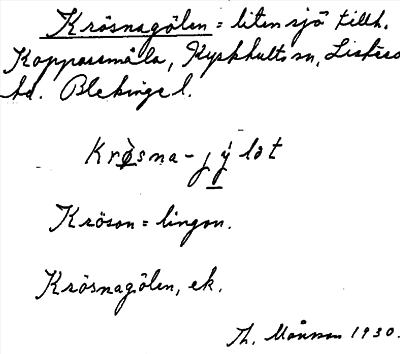 Krösnagölen = liten sjö tillh.
Kopparemåla, Kyrkhults sn, Listers
hd. Blekinge l.
Krösna-jy̋lǝt
Kröson = lingon.
Krösnagölen, ek.
Th. Månsson 1930.